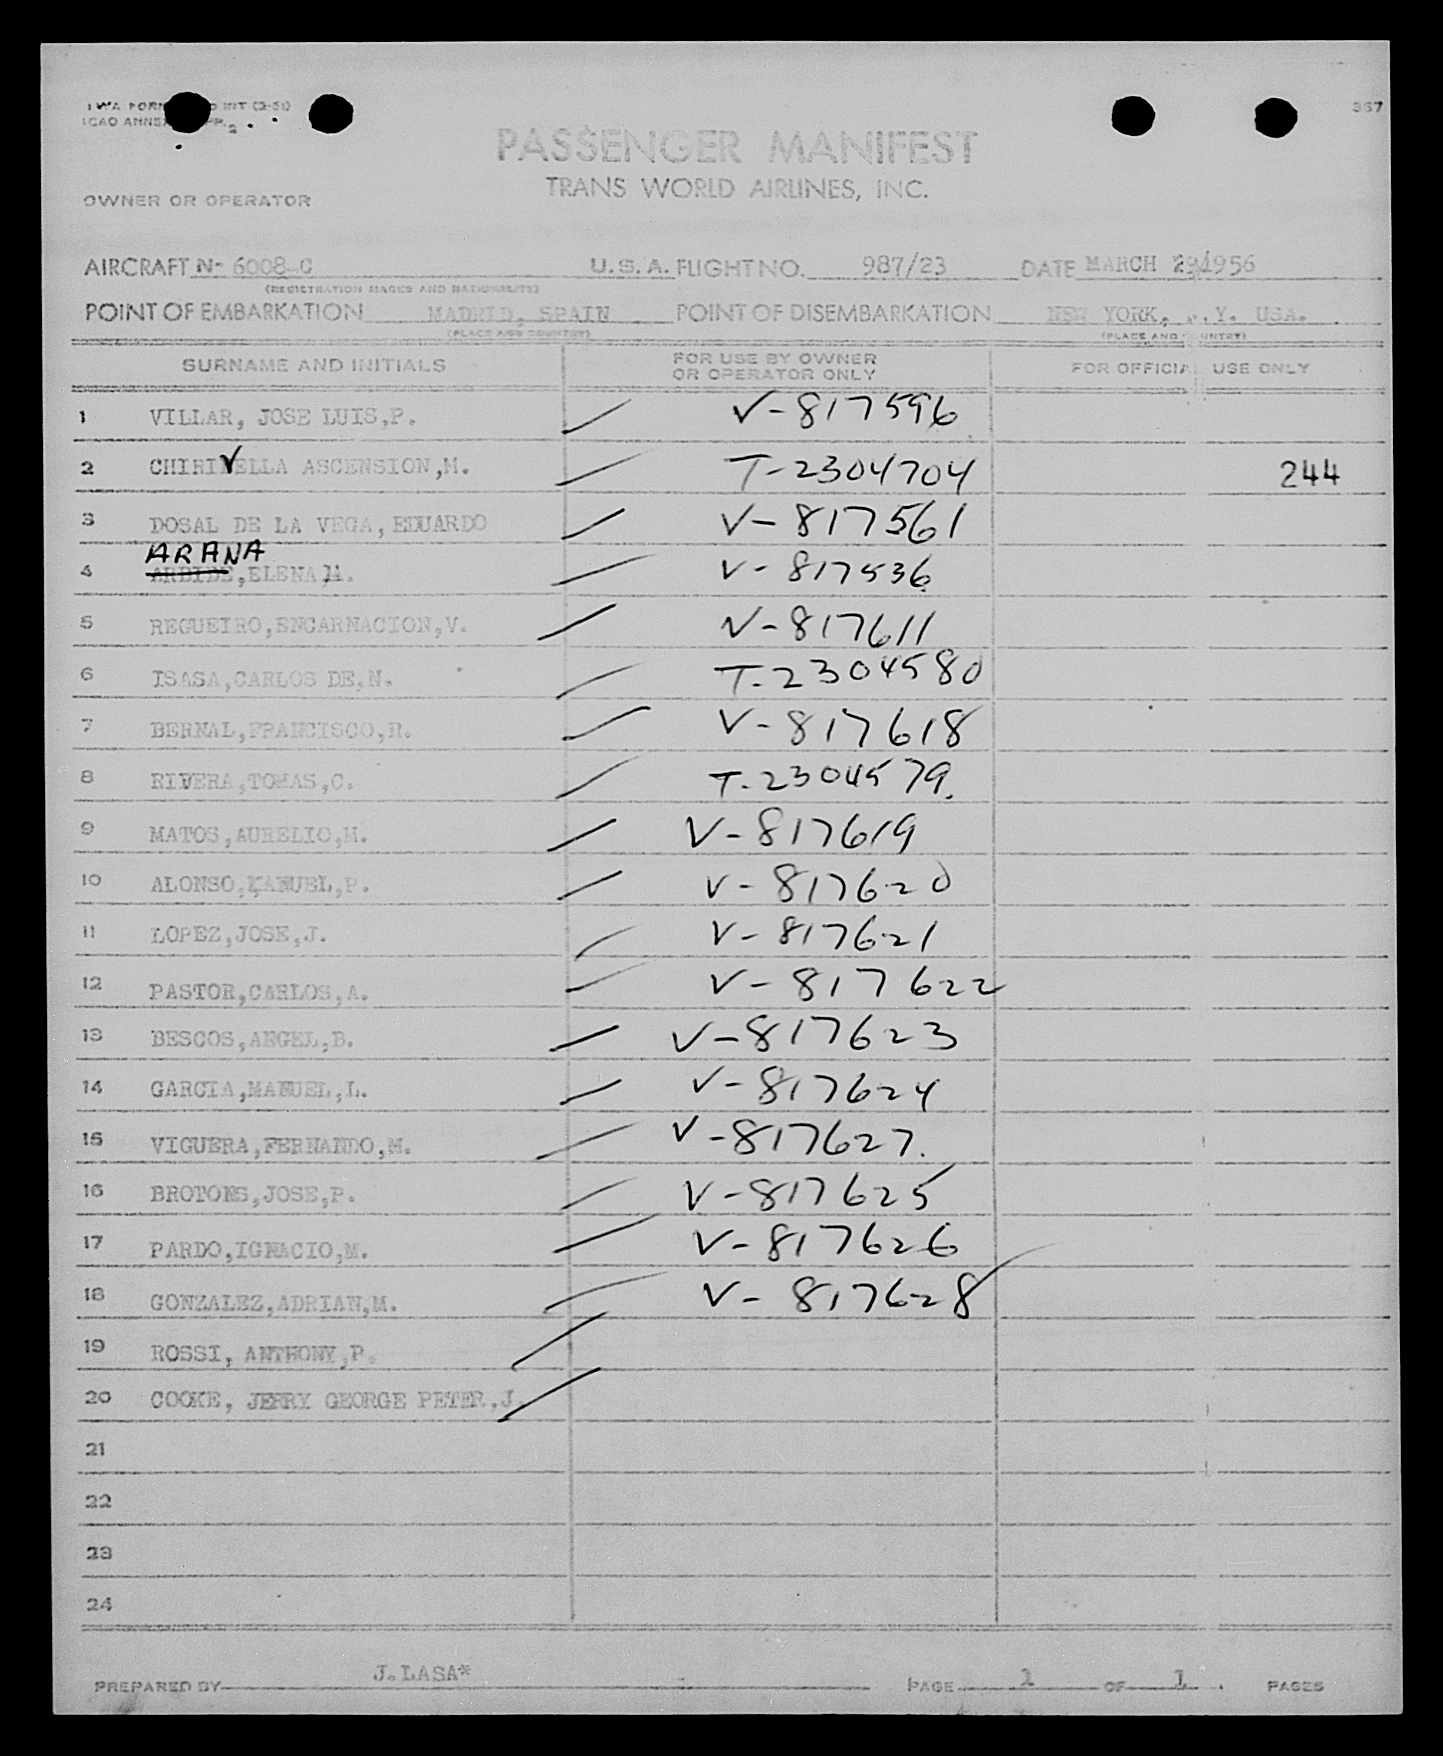 TWA FORM INT (3-51)
ICAO ANNEX
367
PASSENGER MANIFEST
TRANS WORLD AIRLINES, INC.
OWNER OR OPERATOR
AIRCRAFT N- 6008-C U.S.A. FLIGHT NO. 987/23 DATE MARCH 1956
(REGISTRATION MARKS AND NATIONALITY)
POINT OF EMBARKATION MADRID, SPAIN POINT OF DISEMBARKATION NEW YORK, .Y. USA.
(PLACE AND COUNTRY) (PLACE AND UNTRY)
SURNAME AND INITIALS FOR USE BY OWNER OR OPERATOR ONLY FOR OFFICIAL USE ONLY
1 VILLAR, JOSE LUIS,P. / V-817596
2 CHIRIVELLA ASCENSION,M. / T-2304704 244
3 DOSAL DE LA VEGA,EDUARDO / V-817561
ARANA
4 ARBIDE,ELENA,M. / V-817536
5 REGUEIRO,ENCARNACION,V. / V-817611
6 ISASA,CARLOS DE,N. / T.2304580
7 BERNAL,FRANCISCO,R. / V-817618
8 RIVERA,TOMAS,C. / T.2304579.
9 MATOS,AURELIO,M. / V-817619
10 ALONSO,MANUEL,P. / V-817620
11 LOPEZ,JOSE,J. / V-817621
12 PASTOR,CARLOS,A. / V-817622
13 BESCOS,ANGEL,B. / V-817623
14 GARCIA,MANUEL,L. / V-817624
15 VIGUERA,FERNANDO,M. / V-817627.
16 BROTONS,JOSE,P. / V-817625
17 PARDO,IGNACIO,M. / V-817626
18 GONZALEZ,ADRIAN,M. / V-817628
19 ROSSI, ANTHONY,P. /
20 COOKE, JERRY GEORGE PETER,J. /
21
22
23
24
PREPARED BY J.LASA* PAGE 1 OF 1 PAGES